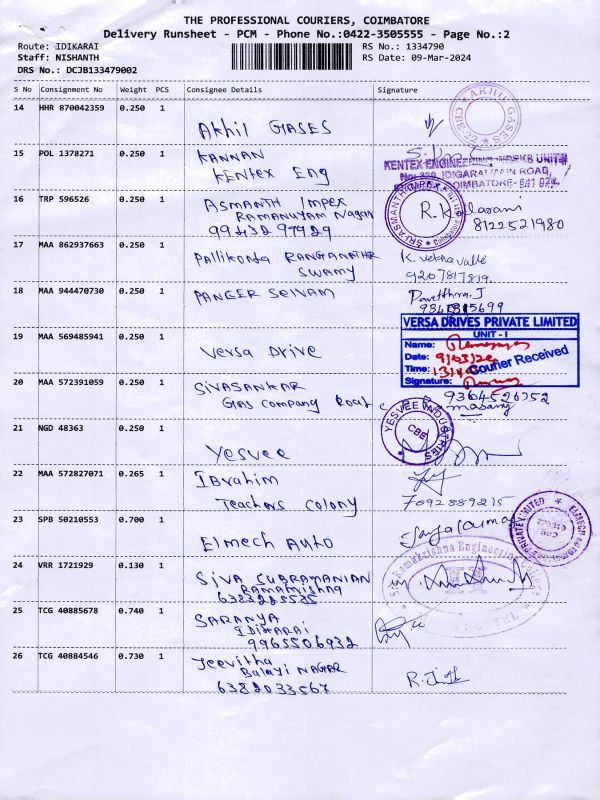 THE PROFESSIONAL COURIERS, COIMBATORE
Delivery Runsheet - PCM - Phone No.:0422-3505555 - Page No.:2
Route: IDIKARAI RS No.: 1334790
Staff: NISHANTH RS Date: 09-Mar-2024
DRS No.: DCJB133479002
S No Consignment No Weight PCS Consignee Details Signature
14 HHR 870042359 0.250 1
Akhil GASES
AKHIL GASES
CBE-22
15 POL 1378271 0.250 1 KANNAN
KENTEX Eng
KENTEX ENGINEERING WORKS UNIT
IDIGARAI MAIN ROAD,
COIMBATORE-
16 TRP 596526 0.250 1 ASMANTH Impex
RAMANUYAM Nagar
99432 97929
8122521980
17 MAA 862937663 0.250 1 Pallikonda RANGANATHR
SWAMY
9207817819
18 MAA 944470730 0.250 1 PANEER SELVAM
19 MAA 569485941 0.250 1
Versa Drive
VERSA DRIVES PRIVATE LIMITED
UNIT - I
Name:
Date:
Time:
Courier Received
Signature:
20 MAA 572391059 0.250 1 SIVASANKAR
GAS Company Road
9364526752
21 NGD 48363 0.250 1
Yesvee
YESVEE INDUSTRIES
CBE
22 MAA 572827071 0.265 1 IBrahim
Teachers Colony
7092889215
23 SPB 50210553 0.700 1
Elmech AUTO
24 VRR 1721929 0.130 1
SIVA SUBRAMANIAN
RAMAKrishna
6383225535
Sri Ramakrishna Engineering College
HOSTEL
25 TCG 40885678 0.740 1 SARANYA
IDIKARAI
9965506932
26 TCG 40884546 0.730 1 Jeevitha
Balaji NAGAR
6382033567